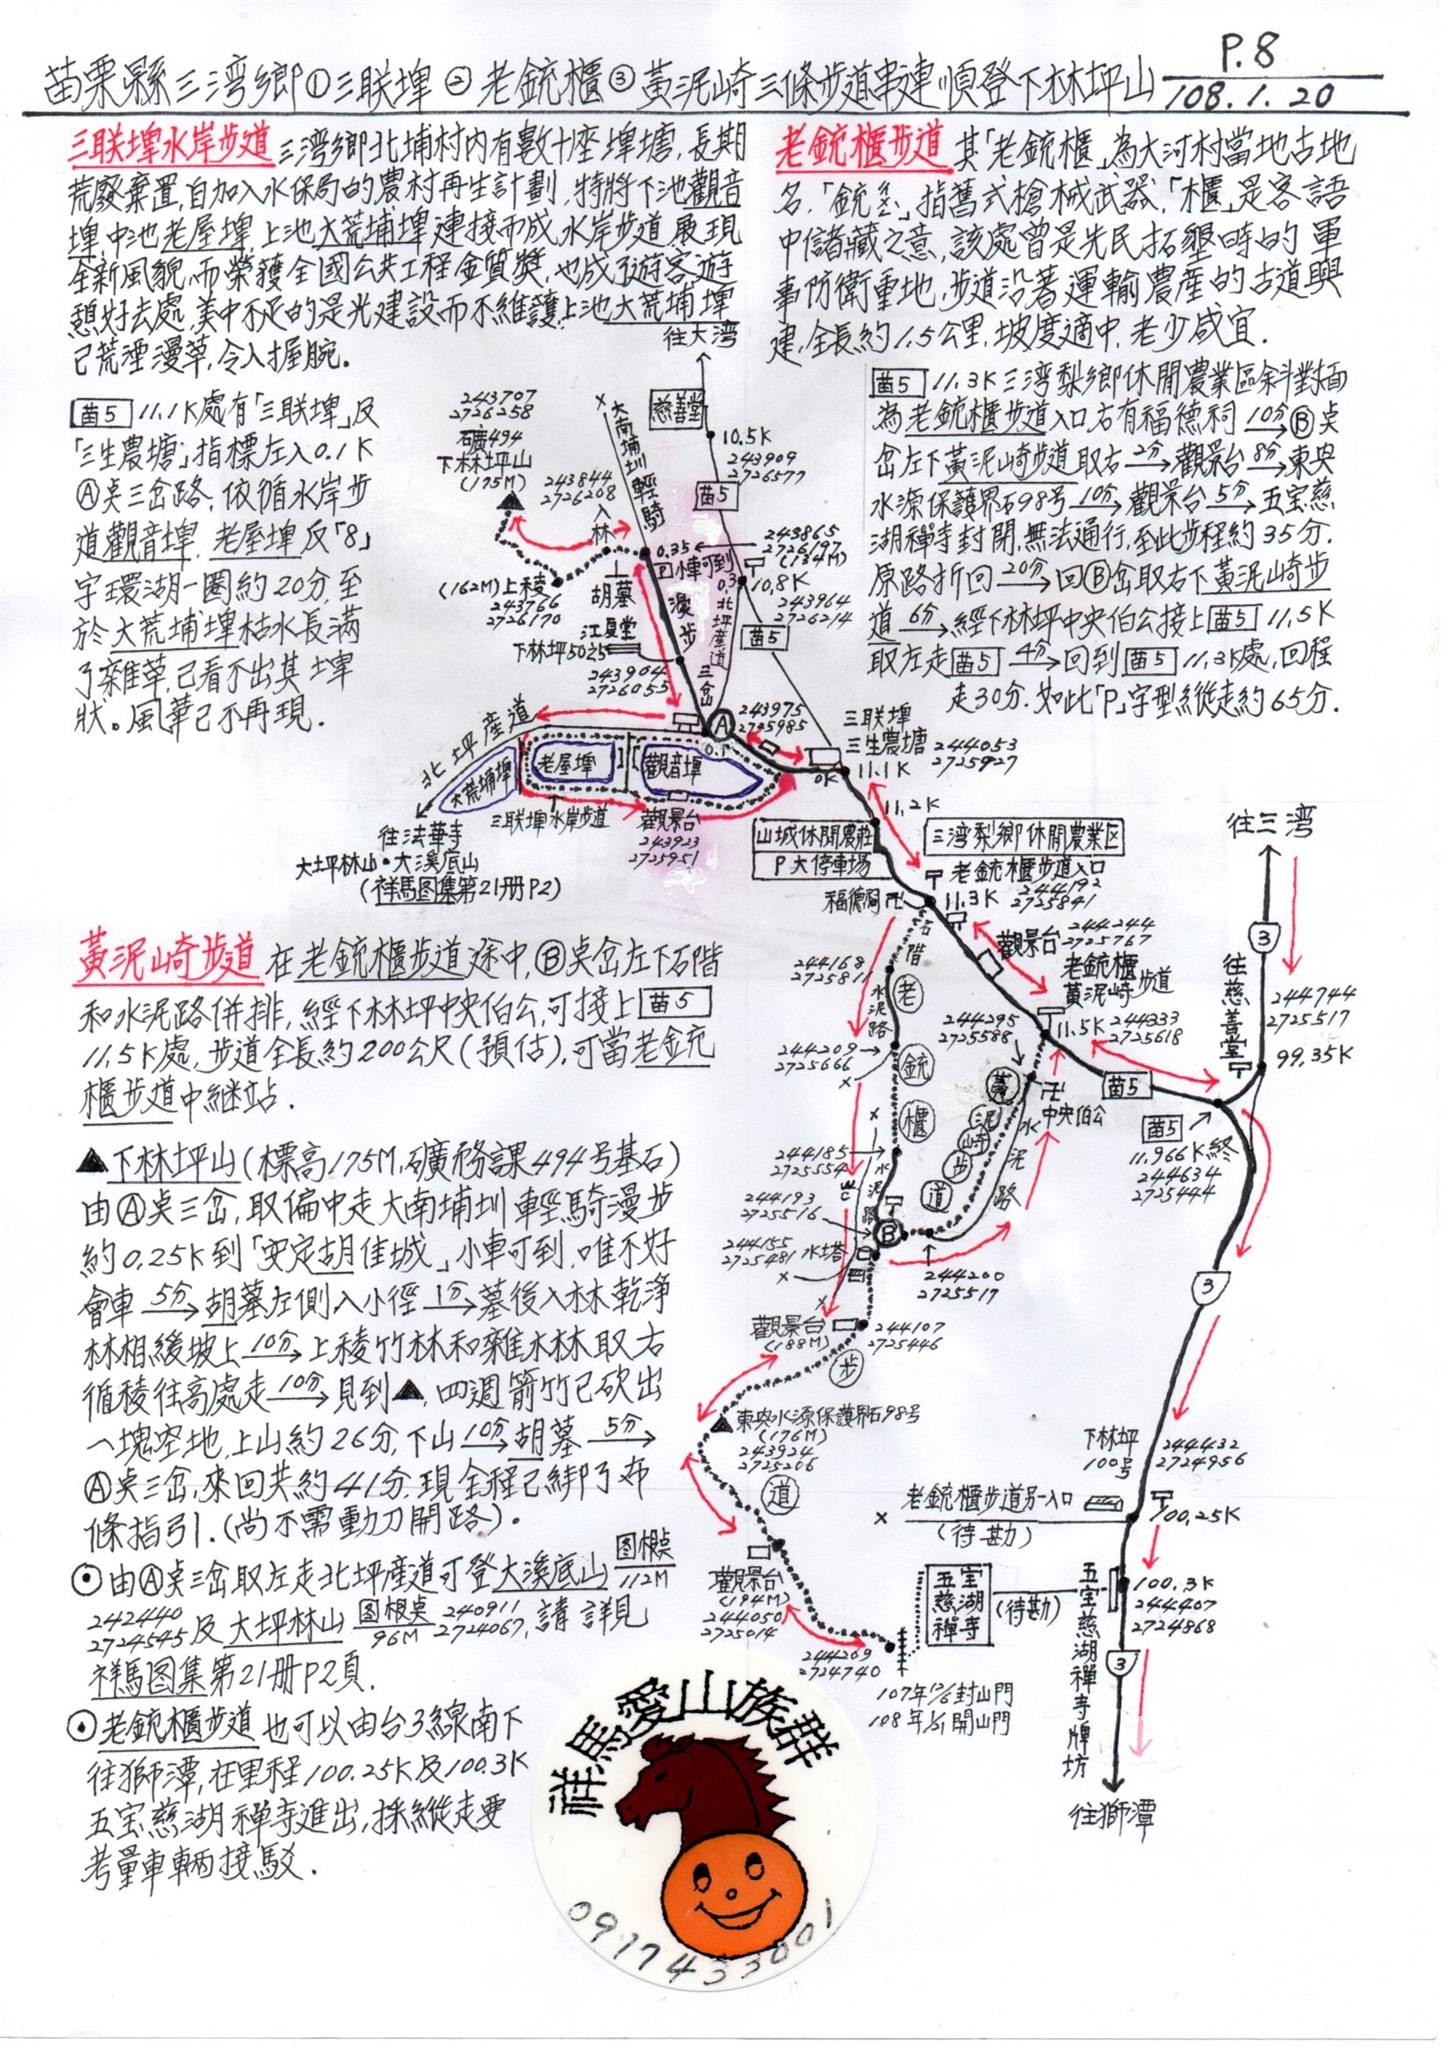 P.8
苗栗縣三湾鄉①三联埤②老銃櫃③黃泥崎三條步道串連順登下林坪山
108.1.20
三联埤水岸步道 三湾鄉北埔村內有數十座埤塘,長期
荒廢棄置,自加入水保局的農村再生計劃,特將下池觀音
埤,中池老屋埤,上池大荒埔埤連接而成水岸步道,展現
全新風貌,而榮獲全國公共工程金質獎,也成了遊客遊
憩好去處,美中不足的是光建設而不維護,上池大荒埔埤
已荒湮漫草,令人握腕。
苗5 11.1K處有「三联埤」及
「三生農塘」指標左入0.1K
Ⓐ奌三岔路,依循水岸步
道觀音埤,老屋埤反「8」
字環湖一圈約20分,至
於大荒埔埤枯水長滿
了雜草,已看不出其埤
狀。風華已不再現.
老銃櫃步道 其「老銃櫃」為大河村當地古地
名,「銃ㄔㄨㄥˋ」指舊式槍械武器,「櫃」是客語
中儲藏之意,該處曾是先民拓墾時的軍
事防衛重地,步道沿著運輸農産的古道興
建,全長約1.5公里,坡度適中,老少咸宜.
苗5 11.3K三湾梨鄉休閒農業區斜對面
為老銃櫃步道入口,右有福德祠 10分→Ⓑ奌
岔左下黃泥崎步道取右 2分→觀景台 8分→東興
水源保護界石98号 10分→觀景台 5分→五宝慈
湖禅寺封閉,無法通行,至此步程約35分.
原路折回 20分→回Ⓑ岔取右下黃泥崎步
道 6分→經下林坪中央伯公接上苗5 11.5K
取左走苗5 4分→回到苗5 11.3K處,回程
走30分.如此「P」字型縱走約65分.
往大湾
慈善堂
大南埔圳輕騎漫步
10.5K
243909
2726577
苗5
243707
2726258
礦494
下林坪山
(175M)
243844
2726208
入林
(162M)上稜
243766
2726170
胡墓
0.35
P小車可到
243865
2726197
(134M)
10.8K
243964
2726214
0.3北坪産道
苗5
江夏堂
下林坪50之5
243904
2726055
三岔
Ⓐ
0.1
243975
2725985
三联埤
三生農塘
244053
2725927
0K
11.1K
北坪産道
大荒埔埤
老屋埤
觀音埤
三联埤水岸步道
觀景台
243923
2725951
往法華寺
大坪林山・大溪底山
(祥馬图集第21册P2)
11.2K
山城休閒農莊
P大停車場
三湾梨鄉休閒農業区
老銃櫃步道入口
244192
2725841
福德祠 卍
11.3K
石階
觀景台
244244
2725767
老銃櫃
黃泥崎步道
11.5K
244333
2725618
244168
2725811
水泥路
244209
2725666
老銃櫃步道
244295
2725588
卍
中央伯公
黃泥崎步道
水泥路
244185
2725554
水泥路
244193
2725516
Ⓑ
244155
2725481
水塔
244200
2725517
觀景台
(188M)
244107
2725446
東興水源保護界石98号
(176M)
243924
2725206
觀景台
(194M)
244050
2725014
244209
2724740
107年12/6封山門
108年1/1開山門
往三湾
3
往慈善堂
244744
2725517
99.35K
苗5
苗5
11.966K終
244634
2725444
3
下林坪
100号
244432
2724956
老銃櫃步道另一入口
(待勘)
100.25K
五宝慈湖禅寺
(待勘)
100.3K
244407
2724868
五宝慈湖禅寺牌坊
3
往獅潭
黃泥崎步道 在老銃櫃步道途中,Ⓑ奌岔左下石階
和水泥路併排,經下林坪中央伯公,可接上苗5
11.5K處,步道全長約200公尺(預估),可當老銃
櫃步道中継站.
▲下林坪山(標高175M,礦務課494号基石)
由Ⓐ奌三岔,取偏中走大南埔圳輕騎漫步
約0.25K到「安定胡佳城」小車可到,唯不好
會車 5分→胡墓左側入小徑 1分→墓後入林乾淨
林相緩坡上 10分→上稜竹林和雜木林取右
循稜往高處走 10分→見到▲,四週箭竹已砍出
一塊空地,上山約26分,下山 10分→胡墓 5分→
Ⓐ奌三岔,來回共約41分.現全程已綁了布
條指引.(尚不需動刀開路).
⊙由Ⓐ奌三岔取左走北坪産道可登大溪底山 图根奌 112M
242440
2724545 及大坪林山 图根奌 96M 240911 2724067,請詳見
祥馬图集第21册P2頁.
⊙老銃櫃步道也可以由台3線南下
往獅潭,在里程100.25K及100.3K
五宝慈湖禅寺進出,採縱走要
考量車輛接駁.
祥馬愛山族群
0917433001